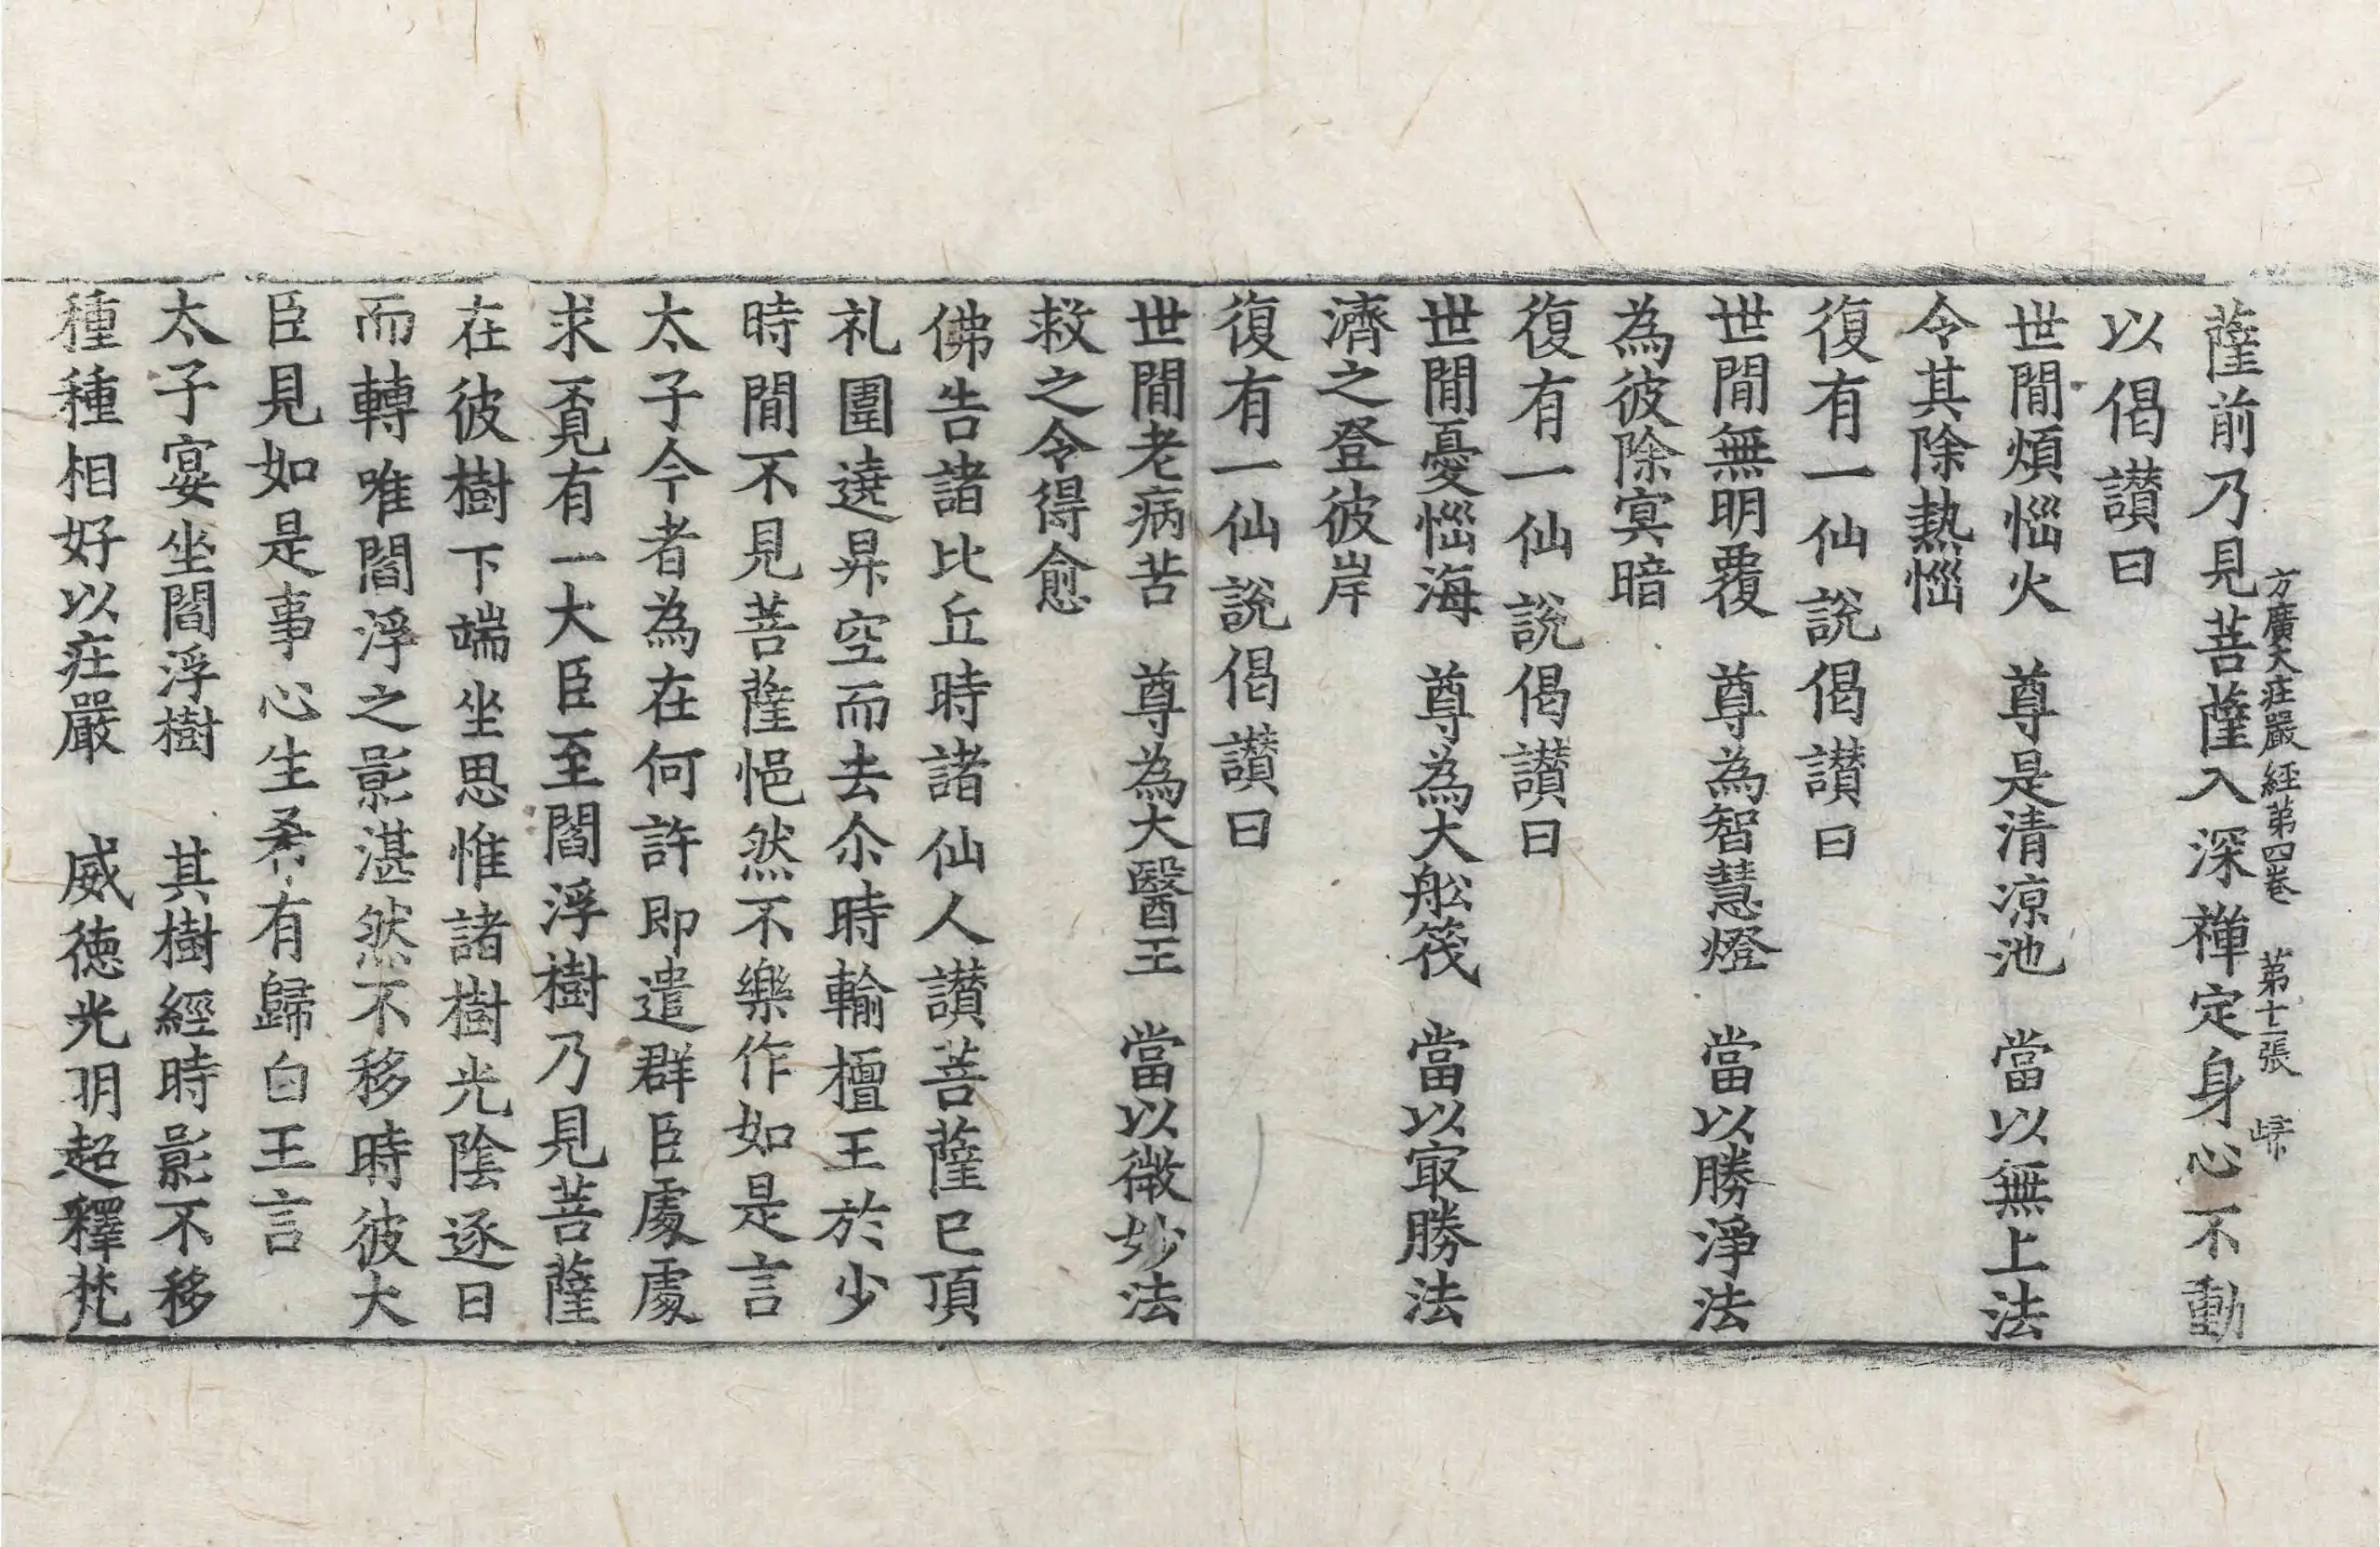 方廣大庄嚴經第四卷 第十二張
薩前乃見菩薩入深禪定身心不動
以偈讃曰
世間煩惱火 尊是清凉池 當以無上法
令其除熱惱
復有一仙說偈讃曰
世間無明覆 尊為智慧燈 當以勝淨法
為彼除冥暗
復有一仙說偈讃曰
世間憂惱海 尊為大舩筏 當以㝡勝法
濟之登彼岸
復有一仙說偈讃曰
世間老病苦 尊為大醫王 當以微妙法
救之令得愈
佛告諸比丘時諸仙人讃菩薩已頂
礼圍遶昇空而去尒時輸檀王於少
時間不見菩薩悒然不樂作如是言
太子今者為在何許即遣群臣處處
求覓有一大臣至閻浮樹乃見菩薩
在彼樹下端坐思惟諸樹光陰逐日
而轉唯閻浮之影湛然不移時彼大
臣見如是事心生希有歸白王言
太子宴坐閻浮樹 其樹經時影不移
種種相好以庄嚴 威徳光明超釋梵